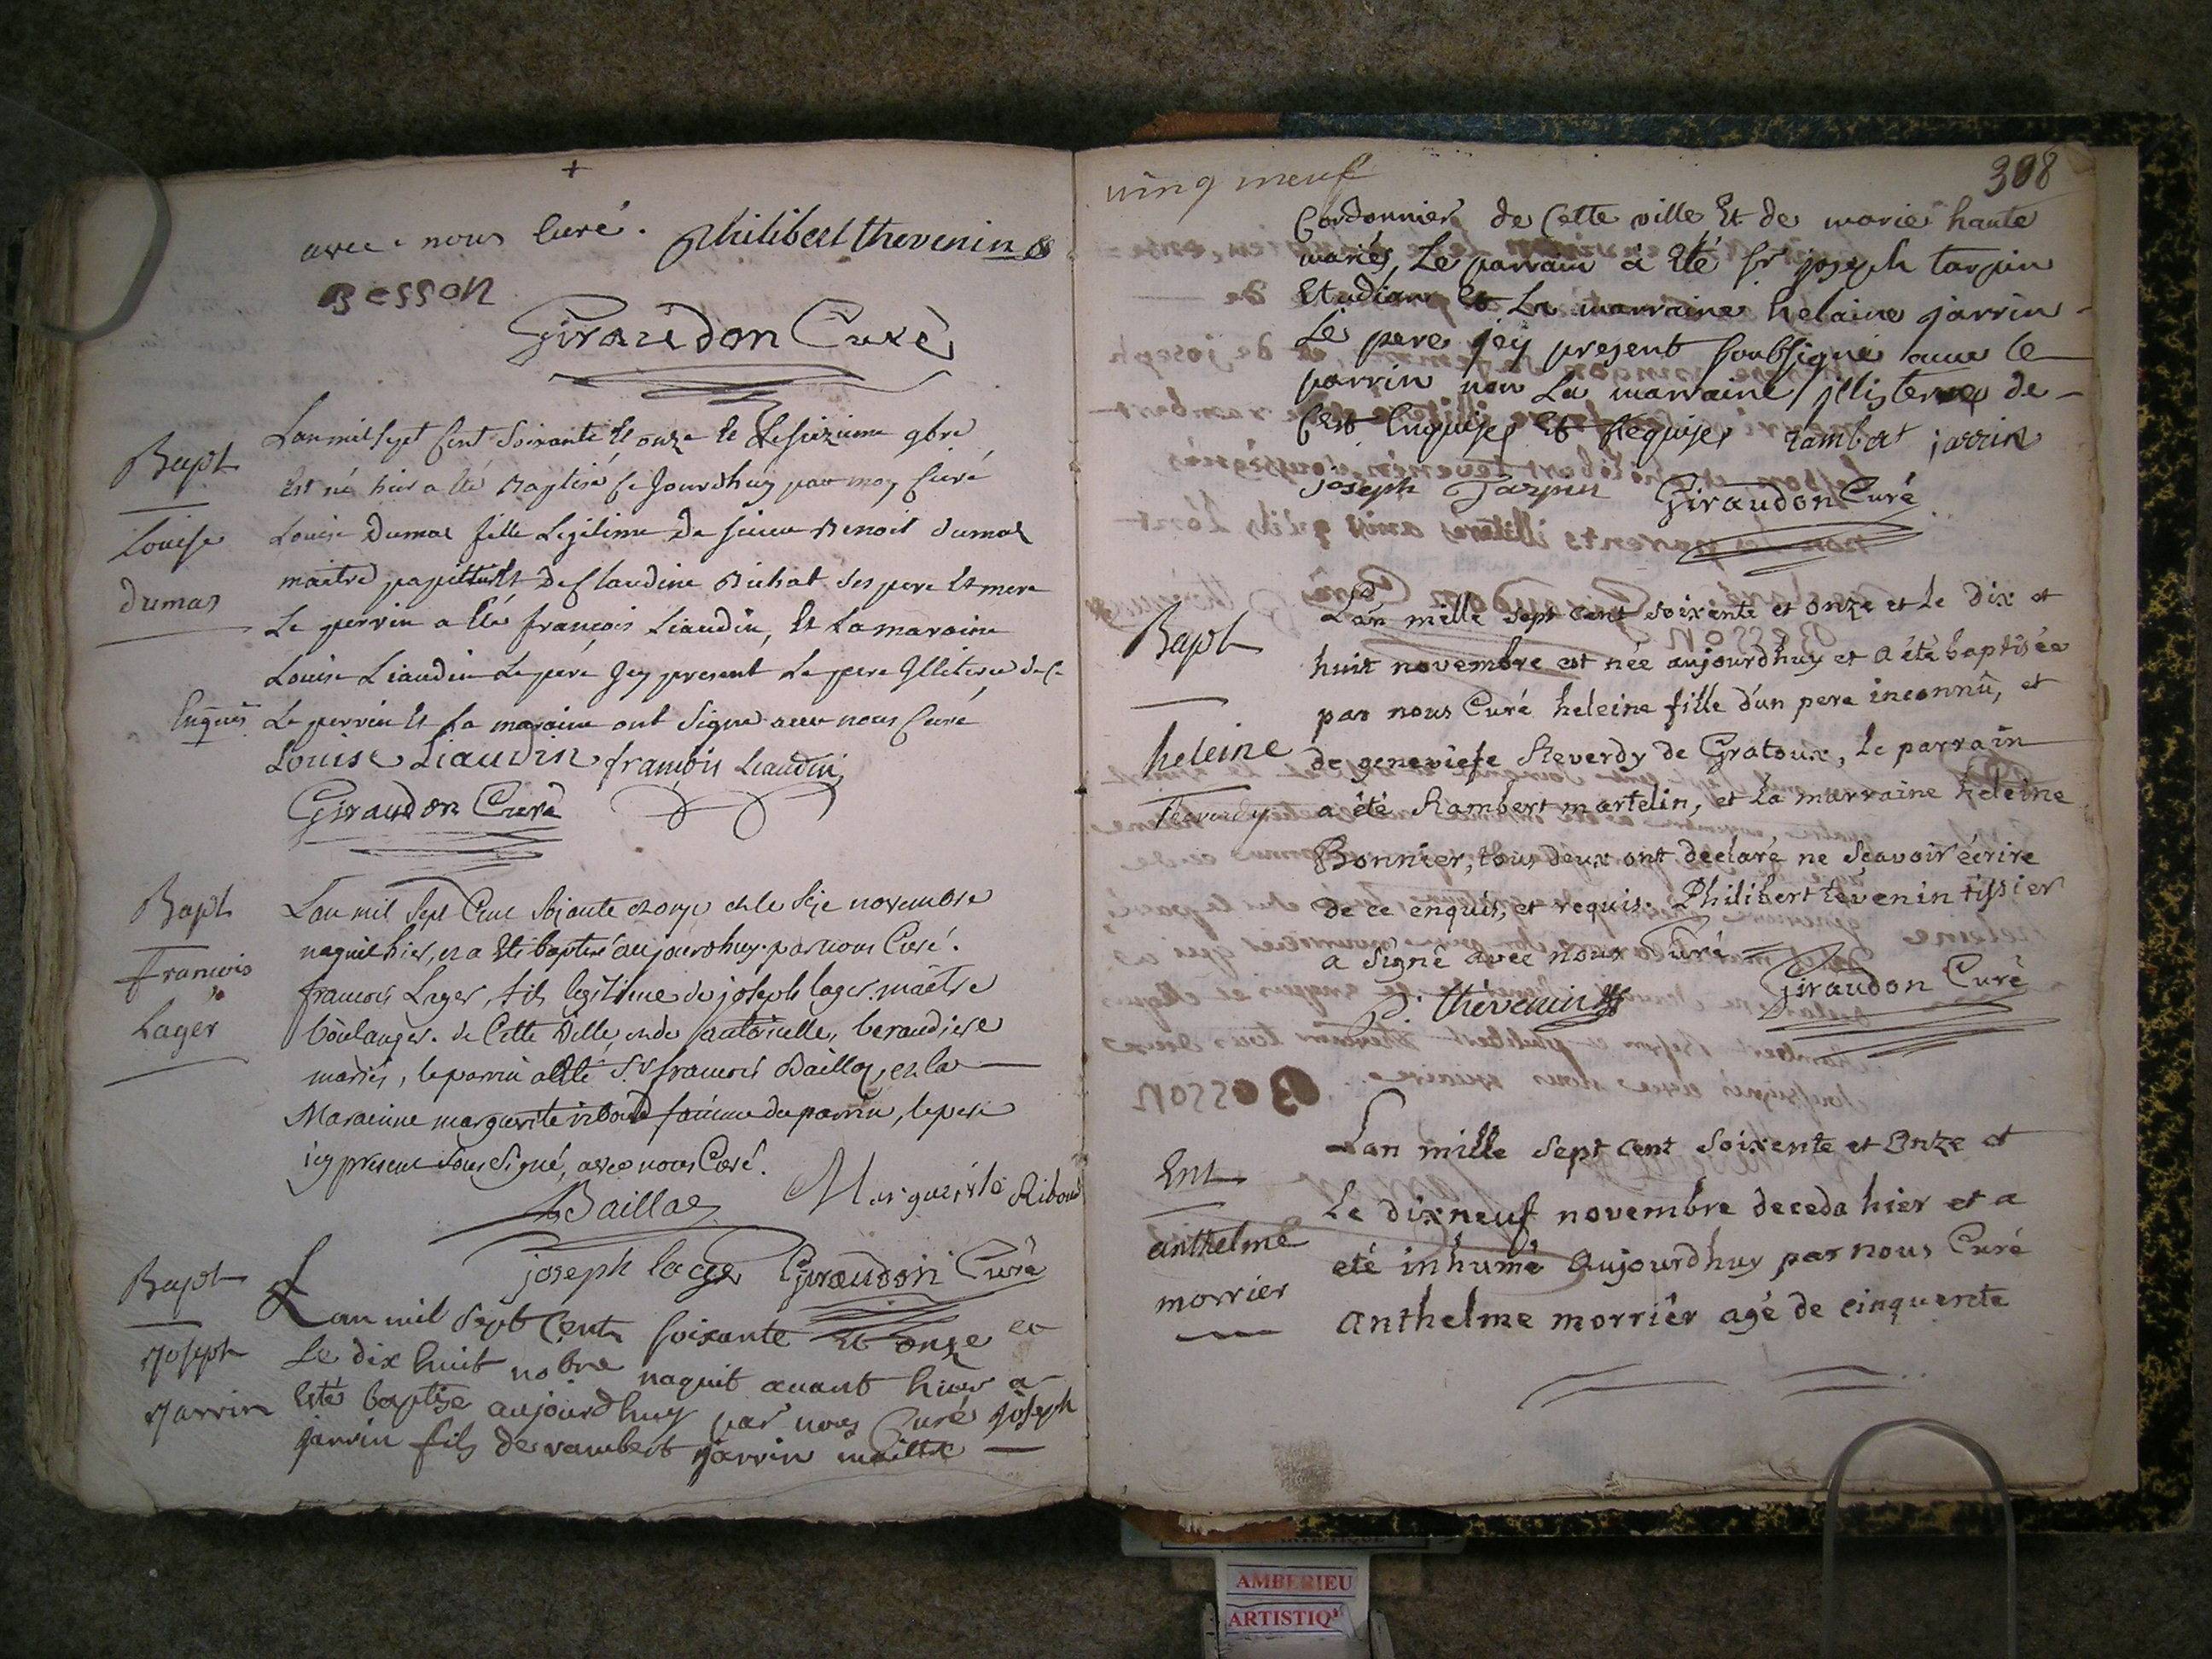 avec nous Curé. Philibert thevenin
Besson
Giraudon Curé
Bapt
Louise
dumas
Lan mil sept Cent Soixante Et onze Et Le seizieme 9bre
Est né hier a Eté Baptisé Ce Jourdhuy par moy Curé
Louise Dumas fille Legitime De sieur Benoit dumas
maitre De Claudine Bichat ses pere Et mere
Le perrin a Eté françois Liaudin, Et La maraine
Louise Liaudin Le pere Icy present Le pere Illiteré de Ce
Enquis Le perrin Et La maraine ont Signe avec nous Curé
Louise Liaudin françois Liaudin
Giraudon Curé
Bapt
Francois
Lager
Lan mil Sept Cent Soixante et onze et le Seize novembre
naquit hier, et a Eté baptisé aujourdhuy par nous Curé.
francois Lager, fils legitime de joseph lager maître
boulanger de Cette Ville, et de beraudiere
mariés, le parrin a Eté Sr francois Baillat, et la
Marainne marguerite riboud femme du parrin, le pere
icy present sous Signé, avec nous Curé.
Baillat Marguerite Riboud
joseph lager Giraudon Curé
Bapt
Joseph
Jarrin
Lan mil Sept Cent soixante Et onze et
Le dix huit nobre naquit avant hier a
Eté baptisé aujourdhuy par nous Curé joseph
jarrin fils de rambert jarrin maittre
ving neuf
308
Cordonnier de Cette ville Et de marie haute
mariés, Le parrain a Eté sr joseph tarpin
Etudiant Et La marraine helaine jarrin
Le pere jcy present soubsigné avec le
parrin non La marraine illiterée de
Cest Enquises Et Requises rambert jarrin
Joseph Tarpin Giraudon Curé
Bapt
heleine
Lan mille sept cent soixente et onze et Le dix et
huit novembre est née aujourdhuy et a été baptisée
par nous Curé heleine fille d'un pere inconnû, et
de geneviefe Steverdy de Gratoux, Le parrain
a été Rambert martelin, et La marraine heleine
Bonnier, tous deux ont declaré ne Scavoir écrire
de ce enquis, et requis. Philibert tevenin tissier
a Signé avec nous Curé
P. thévenin Giraudon Curé
Ent
anthelme
morrier
Lan mille sept cent soixente et onze et
Le dixneuf novembre deceda hier et a
eté inhumé aujourdhuy par nous Curé
anthelme morriér agé de cinquente
AMBERIEU
ARTISTIQ